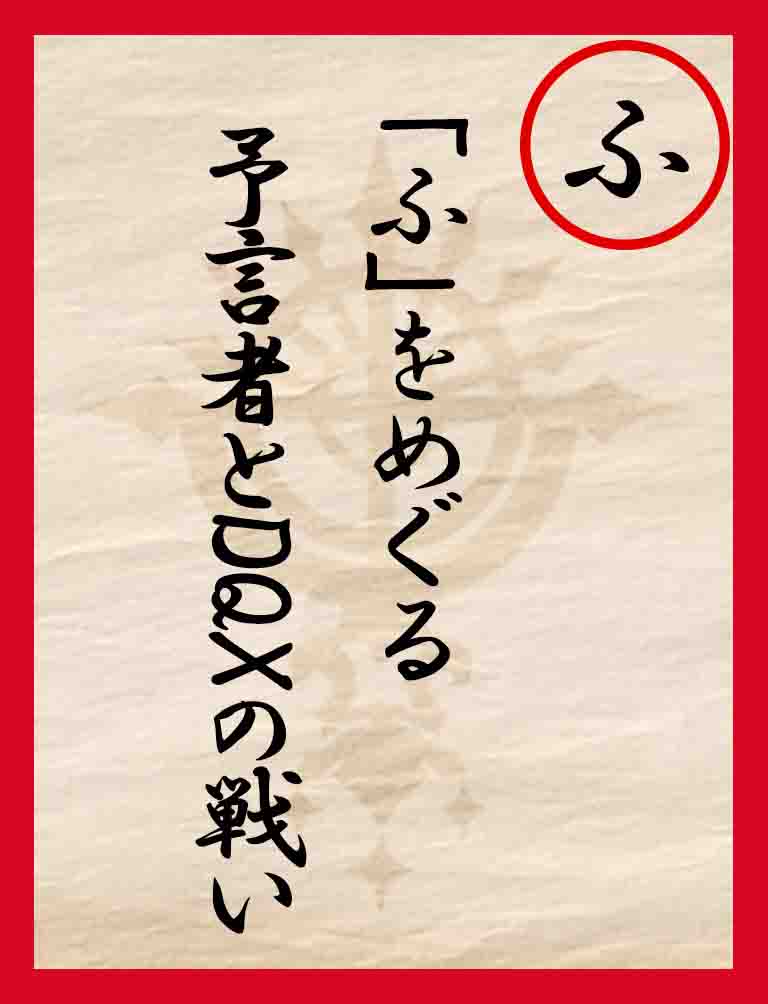 ふ
「ふ」をめぐる
予言者とDQXの戦い